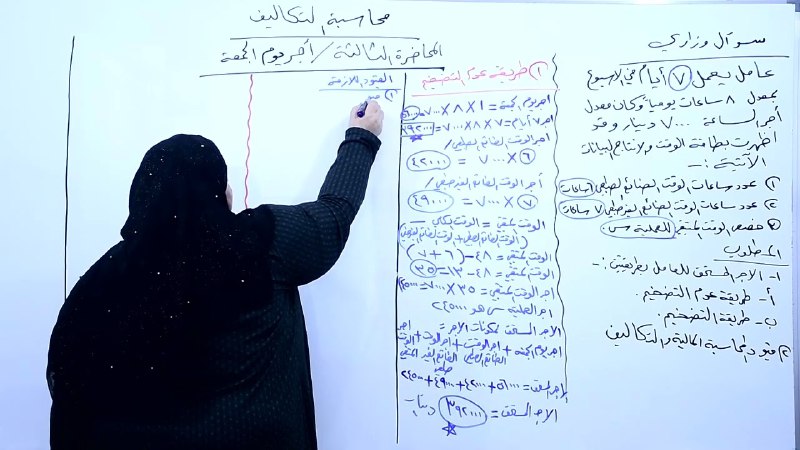 محاسبة التكاليف
المحاضرة الثالثة / أجر يوم الجمعة
سؤال وزاري
عامل يعمل ٧ أيام في الاسبوع
بمعدل ٨ ساعات يومياً وكان معدل
أجر الساعة ٧٠٠٠ دينار وقد
أظهرت بطاقة الوقت والانتاج البيانات
الآتية :-
١) عدد ساعات الوقت الضائع الطبيعي ٦ ساعات
٢) عدد ساعات الوقت الضائع الغير طبيعي ٧ ساعات
٣) خصص الوقت المتبقي للعملية س
المطلوب
١- الاجر المستحق للعامل بطريقتين :-
أ- طريقة عدم التضخيم.
ب- طريقة التضخيم.
٢) قيود المحاسبة المالية والتكاليف
١) طريقة عدم التضخيم
اجر يوم الجمعة = ١ X ٨ X ٧٠٠٠
اجر ٧ أيام = ٧ X ٨ X ٧٠٠٠ = ٣٩٢٠٠٠
اجر الوقت الضائع الطبيعي /
٦ X ٧٠٠٠ = ٤٢٠٠٠
أجر الوقت الضائع الغير طبيعي /
٧ X ٧٠٠٠ = ٤٩٠٠٠
الوقت المتبقي = الوقت الكلي –
(الوقت الضائع الطبيعي + الوقت الضائع الغير طبيعي)
الوقت المتبقي = ٤٨ - (٦ + ٧)
الوقت المتبقي = ٤٨ - ١٣ = ٣٥
اجر الوقت المتبقي = ٣٥ X ٧٠٠٠ = ٢٤٥٠٠٠
اجر العملية س هو ٢٤٥٠٠٠
الاجر المستحق لمكونات الاجر = اجر
اجر يوم الجمعة + اجر الوقت الضائع الطبيعي + اجر الوقت الضائع الغير طبيعي + الوقت المتبقي
الاجر المستحق = ٥٦٠٠٠ + ٤٢٠٠٠ + ٤٩٠٠٠ + ٢٤٥٠٠٠
الاجر المستحق = ٣٩٢٠٠٠ دينار
القيود اللازمة
١) قيد